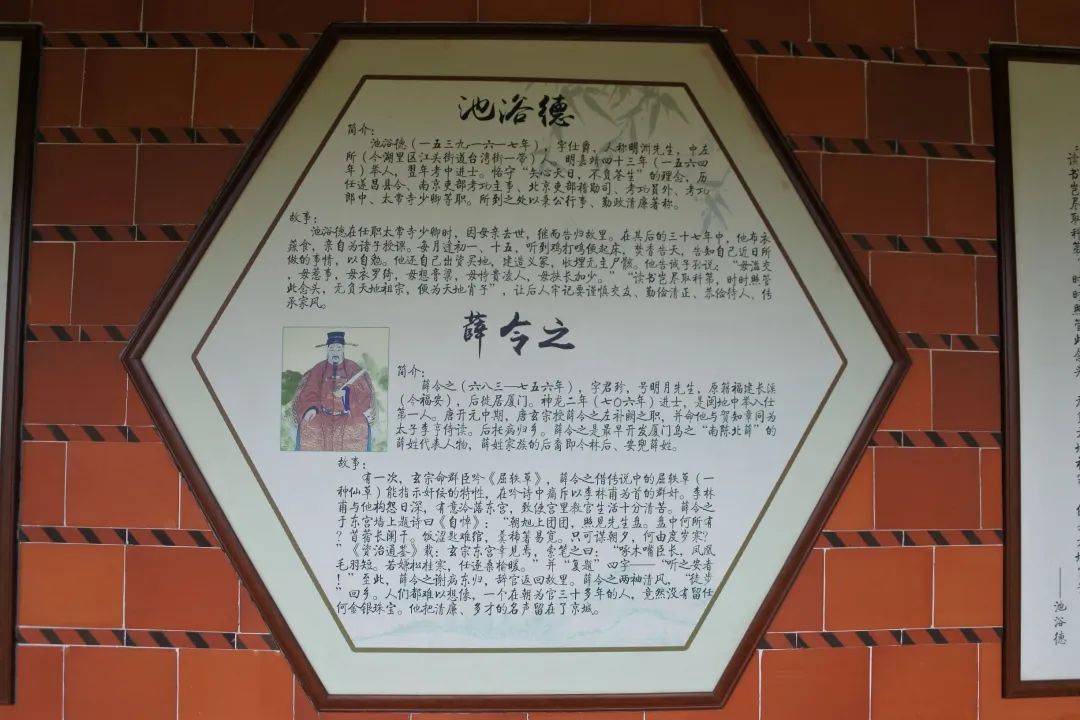 池浴德
简介：
池浴德（一五三九—一六一七年），字仕爵，人称明洲先生，中左
所（今湖里区江头街道台湾街一带）人。明嘉靖四十三年（一五六四
年）举人，翌年考中进士。恪守“矢心天日，不负苍生”的理念，历
任遂昌县令、南京吏部考功主事、北京吏部稽勋司、考功员外、考功
郎中、太常寺少卿等职。所到之处以秉公行事、勤政清廉著称。
故事：
池浴德在任职太常寺少卿时，因母亲去世，继而告归故里。在其后的三十七年中，他布衣
蔬食，亲自为诸子授课。每月逢初一、十五，听到鸡打鸣便起床，焚香告天，告知自己近日所
做的事情，以自勉。他还自己出资买地，建造义冢，收埋无主尸骸。他告诫子孙说：“毋滥交
，毋惹事，毋衣罗绮，毋想膏粱，毋恃贵凌人，毋挟长加少。”“读书岂尽取科第，时时照管
此念头，无负天地祖宗，便为天地肖子”，让后人牢记要谨慎交友、勤俭清正、恭俭待人，传
承家风。
薛令之
简介：
薛令之（六八三—七五六年），字君珍，号明月先生，原籍福建长溪
（今福安），后徙居厦门。神龙二年（七〇六年）进士，是闽地中举入仕
第一人。唐开元中期，唐玄宗授薛令之左补阙之职，并命他与贺知章同为
太子李亨侍读。后托病归乡。薛令之是最早开发厦门岛之“南陈北薛”的
薛姓代表人物，薛姓家族的后裔即今林后、安兜薛姓。
故事：
有一次，玄宗命群臣吟《屈轶草》，薛令之借传说中的屈轶草（一
种仙草）能指示奸佞的特性，在吟诗中痛斥以李林甫为首的群奸。李林
甫与他构怨日深，有意冷落东宫，致使宫里教官生活十分清苦。薛令之
于东宫墙上题诗曰《自悼》：“朝旭上团团，照见先生盘。盘中何所有
？苜蓿长阑干。饭涩匙难绾，羹稀箸易宽。只可谋朝夕，何由度岁寒？
”《资治通鉴》载：玄宗东宫幸见焉，索笔之曰：“啄木嘴臣长，凤凰
毛羽短。若嫌松桂寒，任逐桑榆暖。”并“复题”四字——“听之安者
！”至此，薛令之谢病东归，辞官返回故里。薛令之两袖清风，“徒步
”回乡。人们都难以想像，一个在朝为官三十多年的人，竟然没有留任
何金银珠宝。他把清廉、多才的名声留在了京城。
读书岂尽取科第，时时照管此念头，
——池浴德